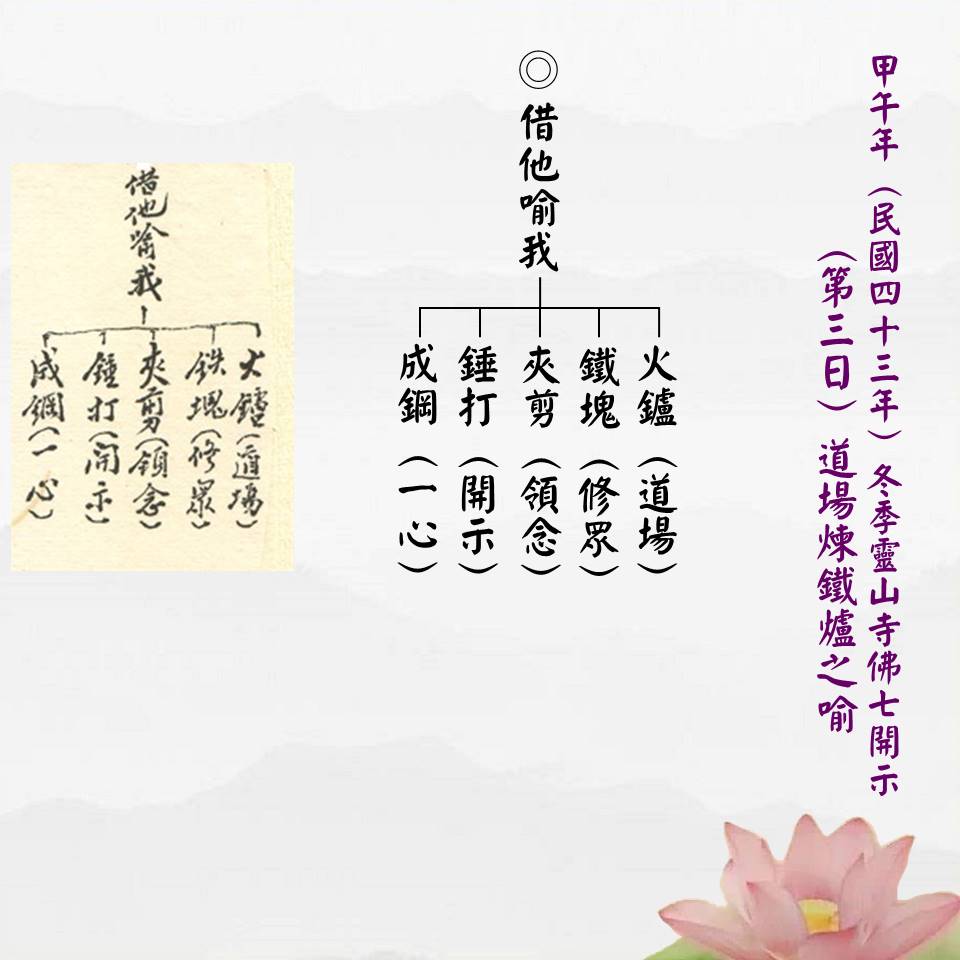 甲午年（民國四十三年）冬季靈山寺佛七開示
（第三日）道場煉鐵爐之喻
◎借他喻我
火鑪（道場）
鐵塊（修眾）
夾剪（領念）
錘打（開示）
成鋼（一心）
借他喻我
火鑪（道場）
鉄塊（修眾）
夾剪（領念）
錘打（開示）
成鋼（一心）